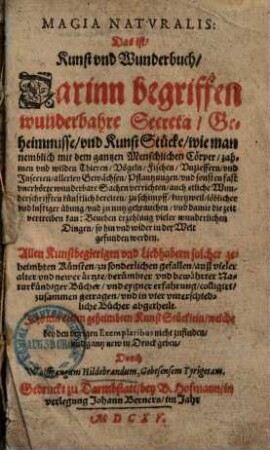 MAGIA NATVRALIS:
Das ist/
Kunst vnd Wunderbuch/
Darinn begriffen
wunderbahre Secreta/ Ge-
heimnusse/vnd Kunst Stücke/wie man
nemblich mit dem gantzen Menschlichen Cörper/zah-
men vnd wilden Thieren/Vögeln/Fischen/Vnzieffern/vnd
Insecten/allerley Gewächsen/Pflantzungen/vnd sonsten fast
vnerhörte wunderbare Sachen verrichten/auch etliche Wun-
derschrifften künstlich bereiten/zu schimpff/kurtzweil/löblicher
vnd lustiger übung/vnd zu nutz gebrauchen/vnd damit die zeit
vertreiben kan: Beneben erzehlung vieler wunderlichen
Dingen/so hin vnd wider in der Welt
gefunden werden.
Allen Kunstbegierigen vnd Liebhabern solcher ge-
heimbten Künsten/zu sonderlichen gefallen/auß vieler
alter vnd newer ärtzte/berümbter vnd bewährter Na-
turkündiger Bücher/vnd eygner erfahrung/colligirt/
zusammen getragen/vnd in vier vnterschiede-
liche Bücher abgetheilt.
geheimbten Kunst Stücklein/welche
bey den vorigen Exemplaribus nicht zufinden/
gantz new in Druck geben/
Durch
Wolffgangum Hildebrandum, Gebesensem Tyrigetam.
Gedruckt zu Darmbstatt/bey B. Hofmann/in
verlegung Johann Berners/im Jahr
MDCXV.
AUGSBURG